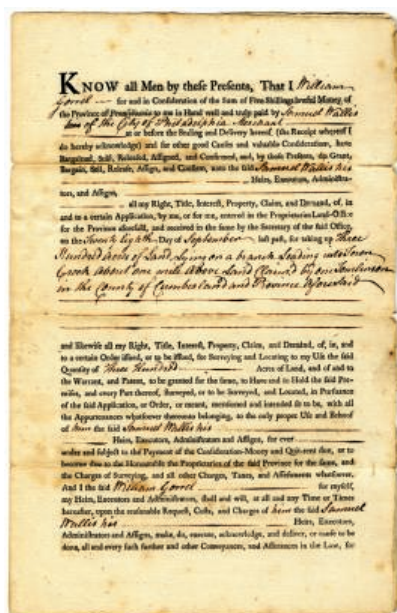 KNOW all Men by these Presents, That I William
Gorrel for and in Consideration of the Sum of Five Shillings lawful Money, of
the Province of Pennsylvania to me in Hand well and truly paid by Samuel Wallis
of the City of Philadelphia Merchant
at or before the Sealing and Delivery hereof (the Receipt whereof I
do hereby acknowledge) and for other good Causes and valuable Consideration, have
Bargained, Sold, Released, Assigned, and Confirmed, and, by these Presents, do Grant,
Bargain, Sell, Release, Assign, and Confirm, unto the said Samuel Wallis his
Heirs, Executors, Administra-
tors, and Assigns,
all my Right, Title, Interest, Property, Claim, and Demand, of, in
and to a certain Application, by me, or for me, entered in the Proprietaries Land-Office
for the Province aforesaid, and received in the same by the Secretary of the said Office,
on the Twenty Eighth Day of September last past, for taking up Three
Hundred Acres of Land Lying on a branch Leading into
Creek about one mile above Land Claimed by one Tomlinson
in the County of Cumberland and Province Aforesaid
and likewise all my Right, Title, Interest, Property, Claim, and Demand, of, in, and
to a certain Order issued, or to be issued, for Surveying and Locating to my Use the said
Quantity of Three Hundred Acres of Land, and of and to
the Warrant, and Patent, to be granted for the same, to Have and to Hold the said Pre-
mises, and every Part thereof, surveyed, or to be Surveyed, and Located, in Pursuance
of the said Application, or Order, or meant, mentioned and intended so to be, with all
the Appurtenances whatsoever thereunto belonging, to the only proper Use and Behoof
of him the said Samuel Wallis his
Heirs, Executors, Administrators and Assigns, for ever
under and subject to the Payment of the Consideration-Money and Quit-rent due, or to
become due to the Honourable the Proprietaries of the said Province for the same, and
the Charges of Surveying, and all other Charges, Taxes, and Assessments whatsoever.
And I the said William Gorrel for myself,
my Heirs, Executors and Administrators, shall and will, at all and any Time or Times
hereafter, upon the reasonable Request, Costs, and Charges of him the said Samuel
Wallis his Heirs, Executors,
Administrators and Assigns, make, do, execute, acknowledge, and deliver, or cause to be
done, all and every such further and other Conveyances, and Assurances in the Law, for